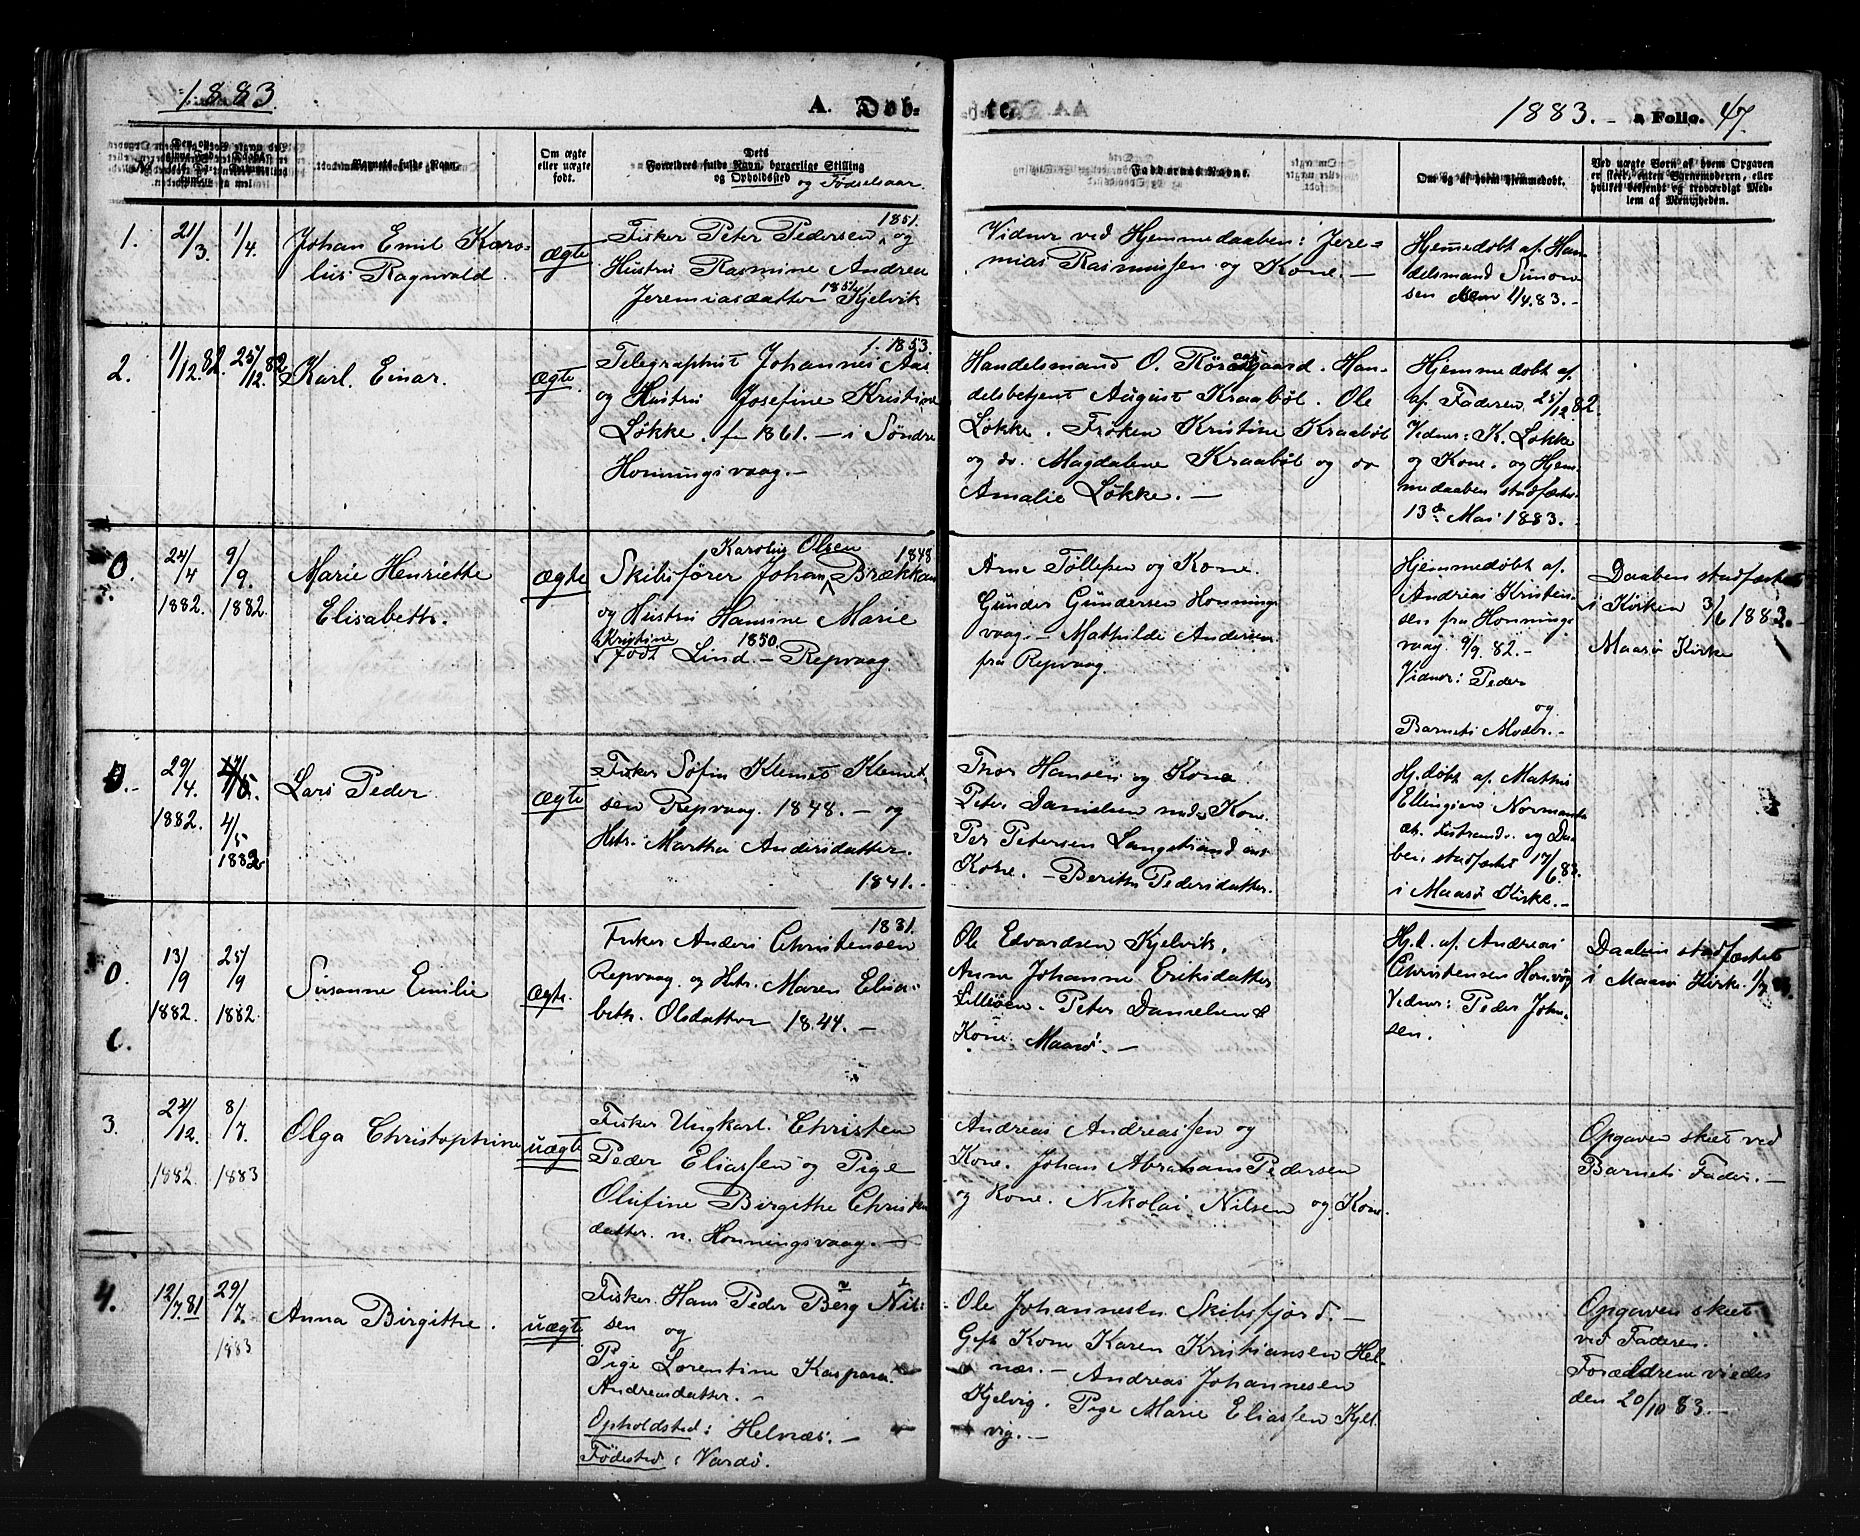 1883.
A. Døb-
te.
1883. a Folio. 47.
No
Barnets fulde Navn.
Om ægte
eller uægte
født.
Forældres fulde Navn, borgerlige Stilling
og Opholdssted
og Fødselsaar.
Faddernes Navne.
Om og af hvem hjemmedøbt.
Ved uægte Børn af hvem Opgaven
er skeet, enten Barnemoderen, eller
hvilket bekjendt og troværdigt Med-
lem af Menigheden.
1.
21/3
1/4
Johan Emil Karo-
lus Ragnvald.
ægte
1851.
Fisker Peter Pedersen, og
Hustru Rasmine Andrea
Jeremiasdatter 1854 Kjelvik
Vidner ved Hjemmedaaben: Jere-
mias Rasmussen og Kone. —
Hjemmedøbt af Han-
delsmand Simon-
sen den 1/4 83. -
2.
1/12. 82.
25/12. 82
Karl. Einar.
ægte
f. 1853.
Telegraphist Johannes Aas
og Hustru Josefine Kristine
Løkke. f. 1861. — i Søndre
Honningsvaag. —
Handelsmand O. Rørasgaard. Han-
delsbetjent August Kraabøl. Ole
Løkke. Frøken Kristine Kraabøl
og do. Magdalene Kraabøl og do
Amalie Løkke. —
Hjemmedøbt af
af Faderen 25/12 82.
Vidner: K. Løkke
og Kone. og Hjem-
medaaben stadfæstet
13de Mai 1883.
0.
24/4
1882.
9/9.
1882.
Marie Henriette
Elisabeth.
ægte
Karolus Olsen 1848
Skibsfører Johan Brækkan
og Hustru Hansine Marie
Kristine 1850.
født Lind — Repvaag
Arne Tøllefsen og Kone.
Gunder Gundersen Honnings
vaag. — Mathilde Andersen
fra Repvaag.
Hjemmedøbt af
Andreas Kristen-
sen fra Honnings
vaag 9/9. 82. —
Vidner: Peder
og
Barnets Moder. —
Daaben stadfæstet
i Kirken 3/6 1883. —
Maasø Kirke
0. -
29/4.
1882.
4/5
1882
Lars Peder
ægte
Fisker Søfin Klemet Klemet-
sen Repvaag. 1848. — og
Hstr. Martha Andersdatter.
1841. -
Thor Hansen og Kone
Peter Danielsen med Kone.
Per Petersen Langstrand og
Kone. — Berithe Pedersdatter.
Hj. døbt af Mathis
Ellingsen Normanset
og Daa-
ben stadfæstet 17/6. 83.
i Maasø Kirke. —
0.
13/9
1882.
25/9
1882.
Susanne Emilie
ægte.
1831.
Fisker Anders Christensen
Repvaag og Hstr. Maren Elisa-
beth Olsdatter 1844. —
Ole Edvardsen Kjelvik.
Anne Johanne Eriksdatter
Peter Danielsen &
Kone. Maasø. —
Hj. d. af Andreas
Christensen Honvåg
Vidner: Peder John-
sen.
Daaben stadfæstet
i Maasø Kirke
3.
24/12
1882.
8/7.
1883
Olga Christophine
uægte
Fisker Ungkarl. Christen
Peder Eliassen og Pige
Olufine Birgithe Christen
datter. n. Honningsvaag. —
Andreas Andreassen og
Kone. Johan Abraham Pedersen
og Kone. Nikolai Nilsen og Kone.
Opgaven skeet ved
Barnets Fader. —
4.
12/7. 81
29/7.
1883
Anna Birgithe.
uægte
Fisker. Hans Peder Berg Nil-
sen og
Pige Lorentine Kaspara
Andreasdatter. —
Opholdsted: Helnæs. —
Fødested: Vardø.
Ole Johannesen Skibsfjord. —
Gift Kone Karen Kristiansen Hel-
næs. — Andreas Johannesen
Kjelvig. Pige Marie Eliassen Kjel
vig. —
Opgaven skeet
ved Faderen.
Forældrene viedes
den 20/10 83. —